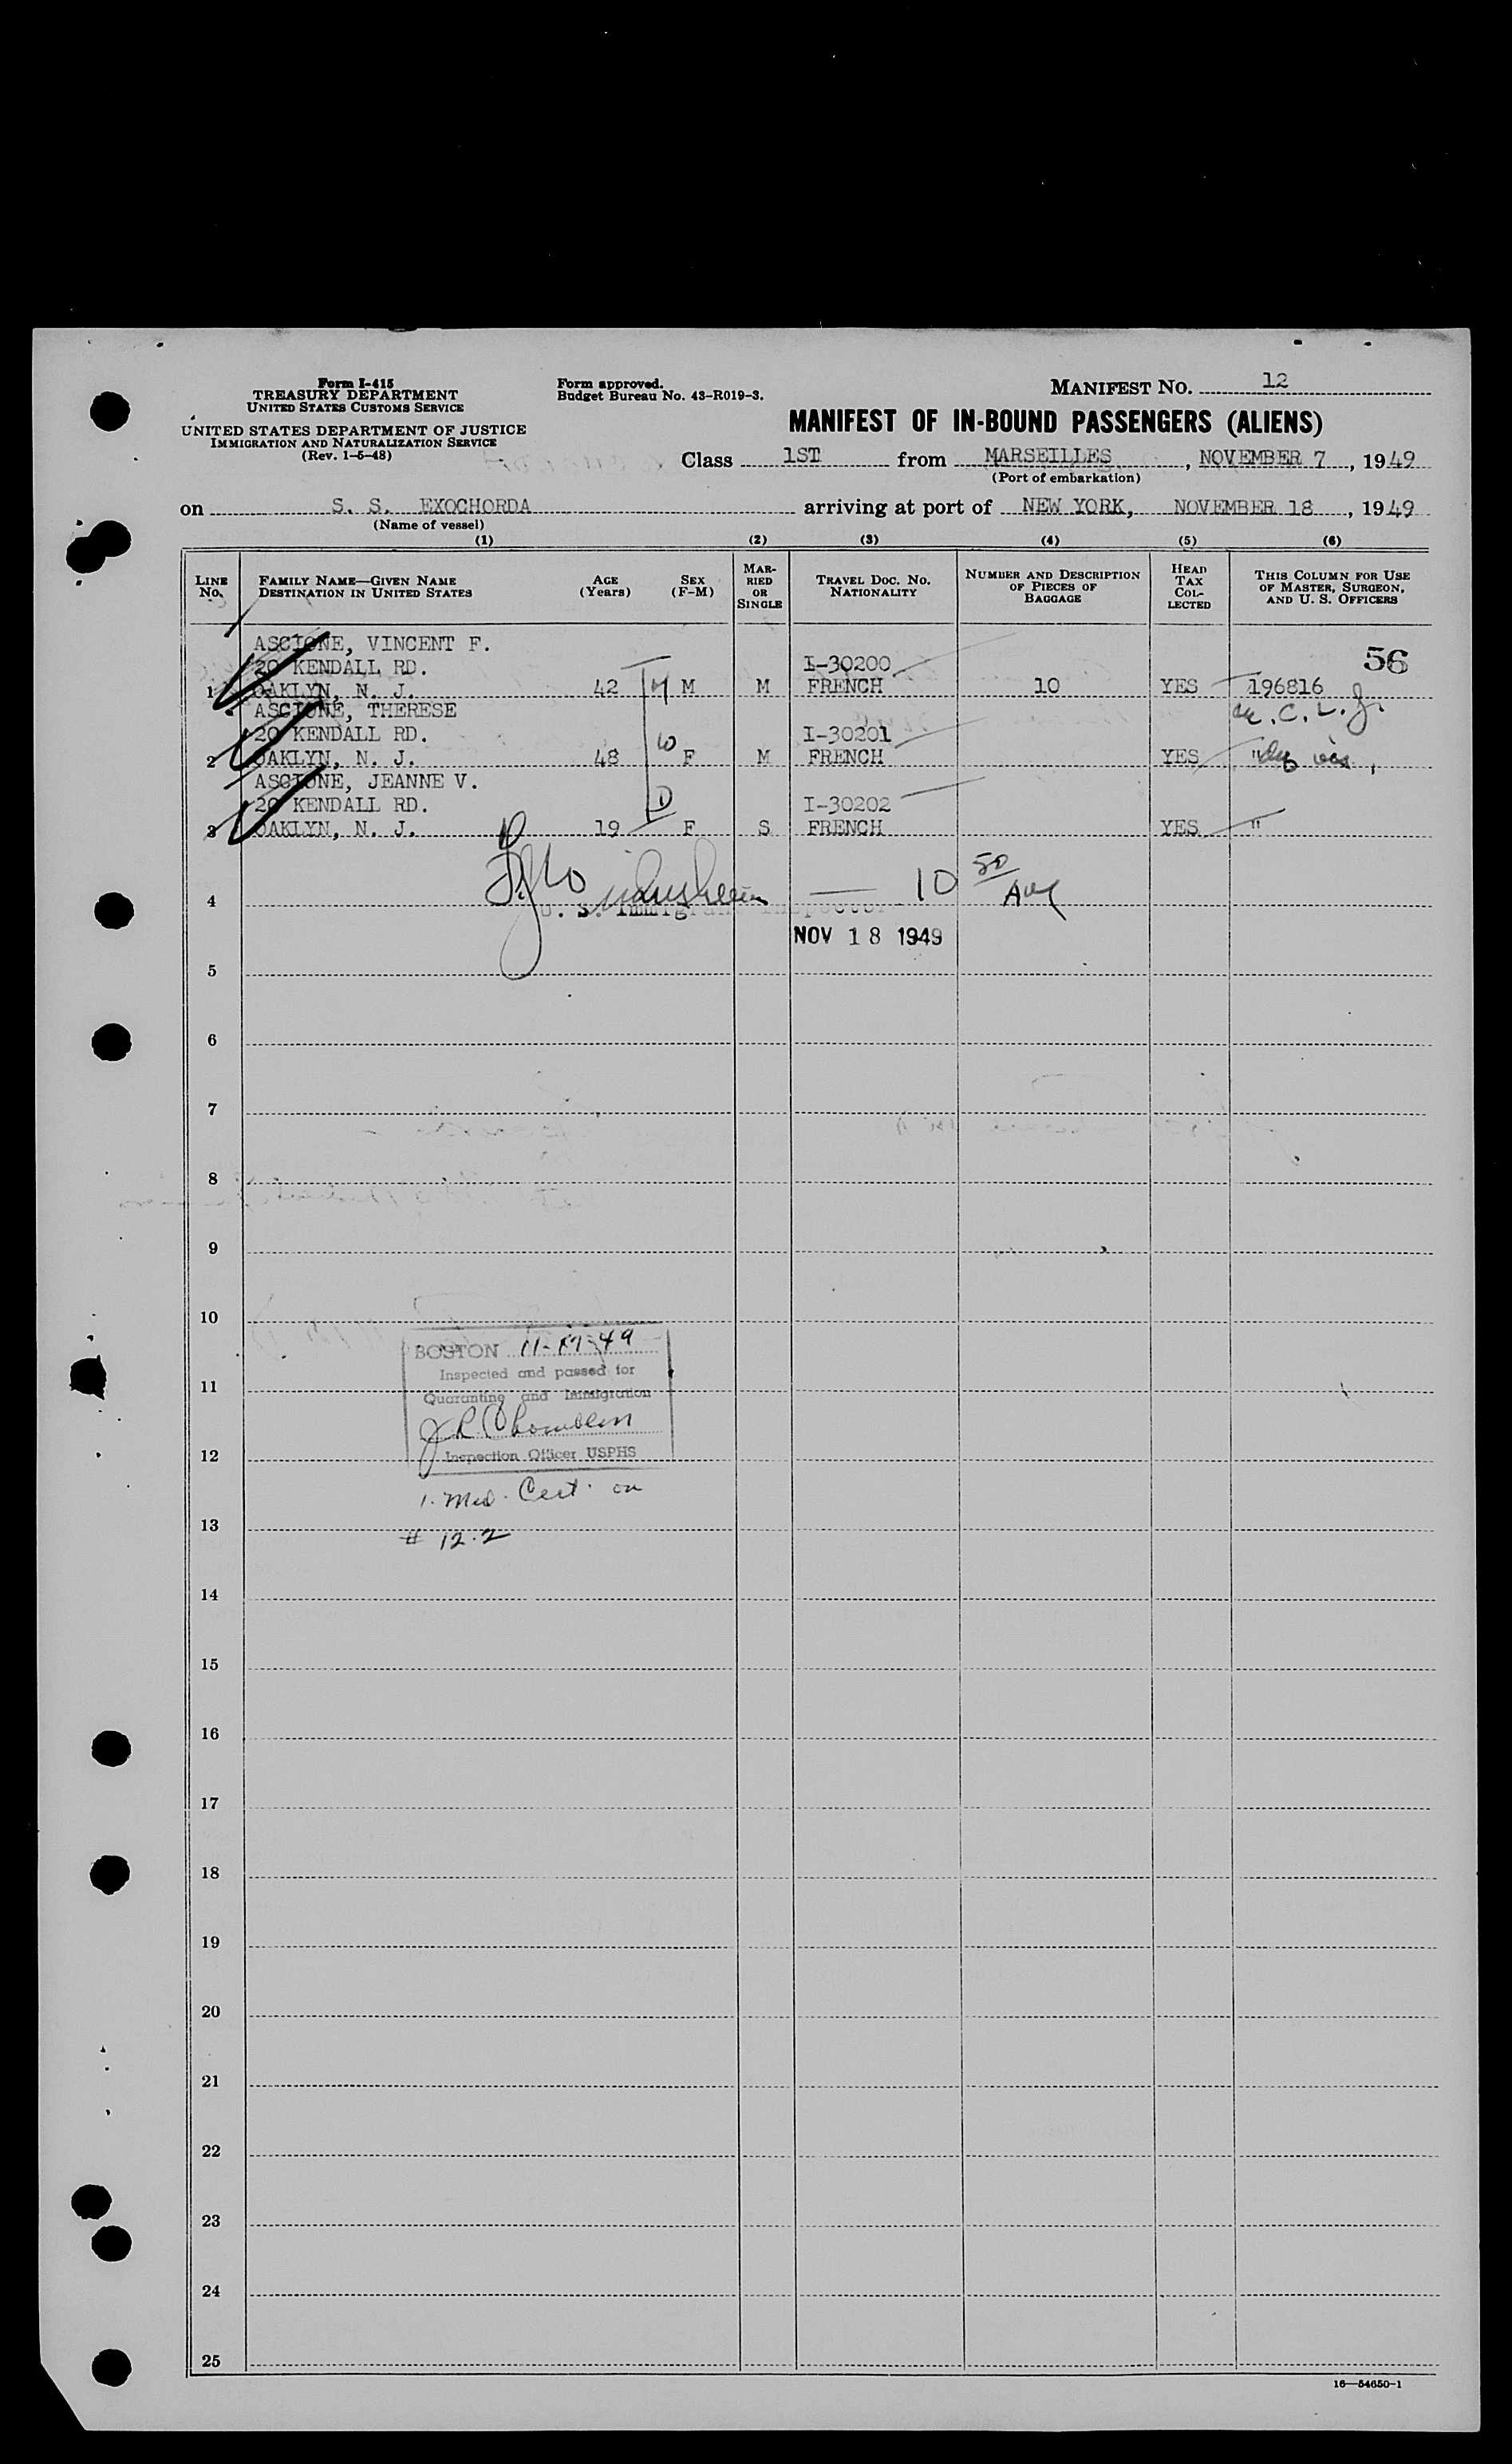 Form I-415
TREASURY DEPARTMENT
UNITED STATES CUSTOMS SERVICE
UNITED STATES DEPARTMENT OF JUSTICE
IMMIGRATION AND NATURALIZATION SERVICE
(Rev. 1-5-48)
Form approved.
Budget Bureau No. 43-R019-3.
MANIFEST NO. 12
MANIFEST OF IN-BOUND PASSENGERS (ALIENS)
Class 1ST from MARSEILLES, NOVEMBER 7, 1949
(Port of embarkation)
on S. S. EXOCHORDA arriving at port of NEW YORK, NOVEMBER 18, 1949
(Name of vessel)
(1) (2) (3) (4) (5) (6)
LINE No. FAMILY NAME—GIVEN NAME DESTINATION IN UNITED STATES AGE (Years) SEX (F-M) MARRIED OR SINGLE TRAVEL DOC. NO. NATIONALITY NUMBER AND DESCRIPTION OF PIECES OF BAGGAGE HEAD TAX COLLECTED THIS COLUMN FOR USE OF MASTER, SURGEON, AND U. S. OFFICERS
ASCIONE, VINCENT F.
20 KENDALL RD. I-30200 56
1 OAKLYN, N. J. 42 H M M FRENCH 10 YES 196816
ASCIONE, THERESE
20 KENDALL RD. I-30201
2 OAKLYN, N. J. 48 W F M FRENCH YES "
ASCIONE, JEANNE V.
20 KENDALL RD. I-30202
3 OAKLYN, N. J. 19 D F S FRENCH YES "
10 50
4 U. S. Immigrant Inspector
NOV 18 1949
5
6
7
8
9
10
BOSTON 11-17-49
Inspected and passed for
11
Quarantine and Immigration
12
Inspection Officer USPHS
1. Med. Cert. on
13
# 12.2
14
15
16
17
18
19
20
21
22
23
24
25
16—54650-1